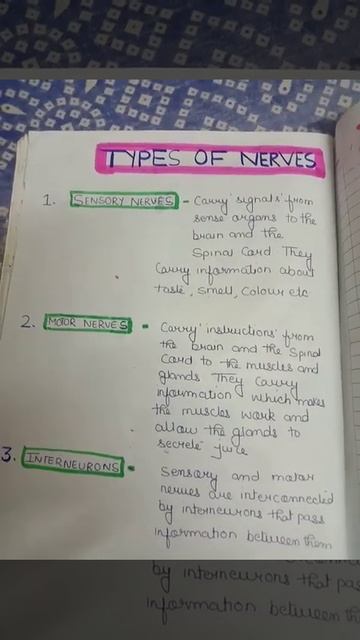 TYPES OF NERVES
1. SENSORY NERVES - Carry signals from
sense organs to the
brain and the
Spinal Card They
Carry information about
taste, smell, Colour etc
2. MOTOR NERVES - Carry instructions from
the brain and the Spinal
Card to the muscles and
glands They Carry
information which makes
the muscles work and
allow the glands to
secrete juice
3. INTERNEURONS - Sensory and motor
nerves are interconnected
by interneurons that pass
information between them
by interneurons that pas
information between th